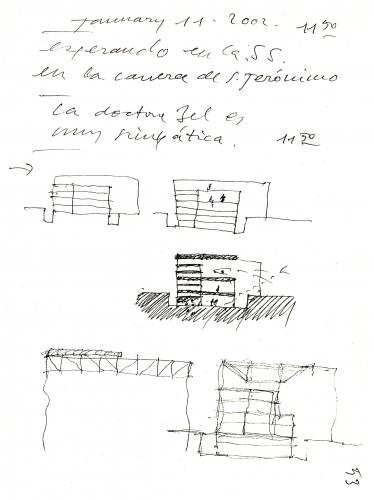 January 11. 2002. 11 50
esperando en la SS.
en la carrera de S. Jerónimo
La doctora Bel es
muy simpática. 11 50
53